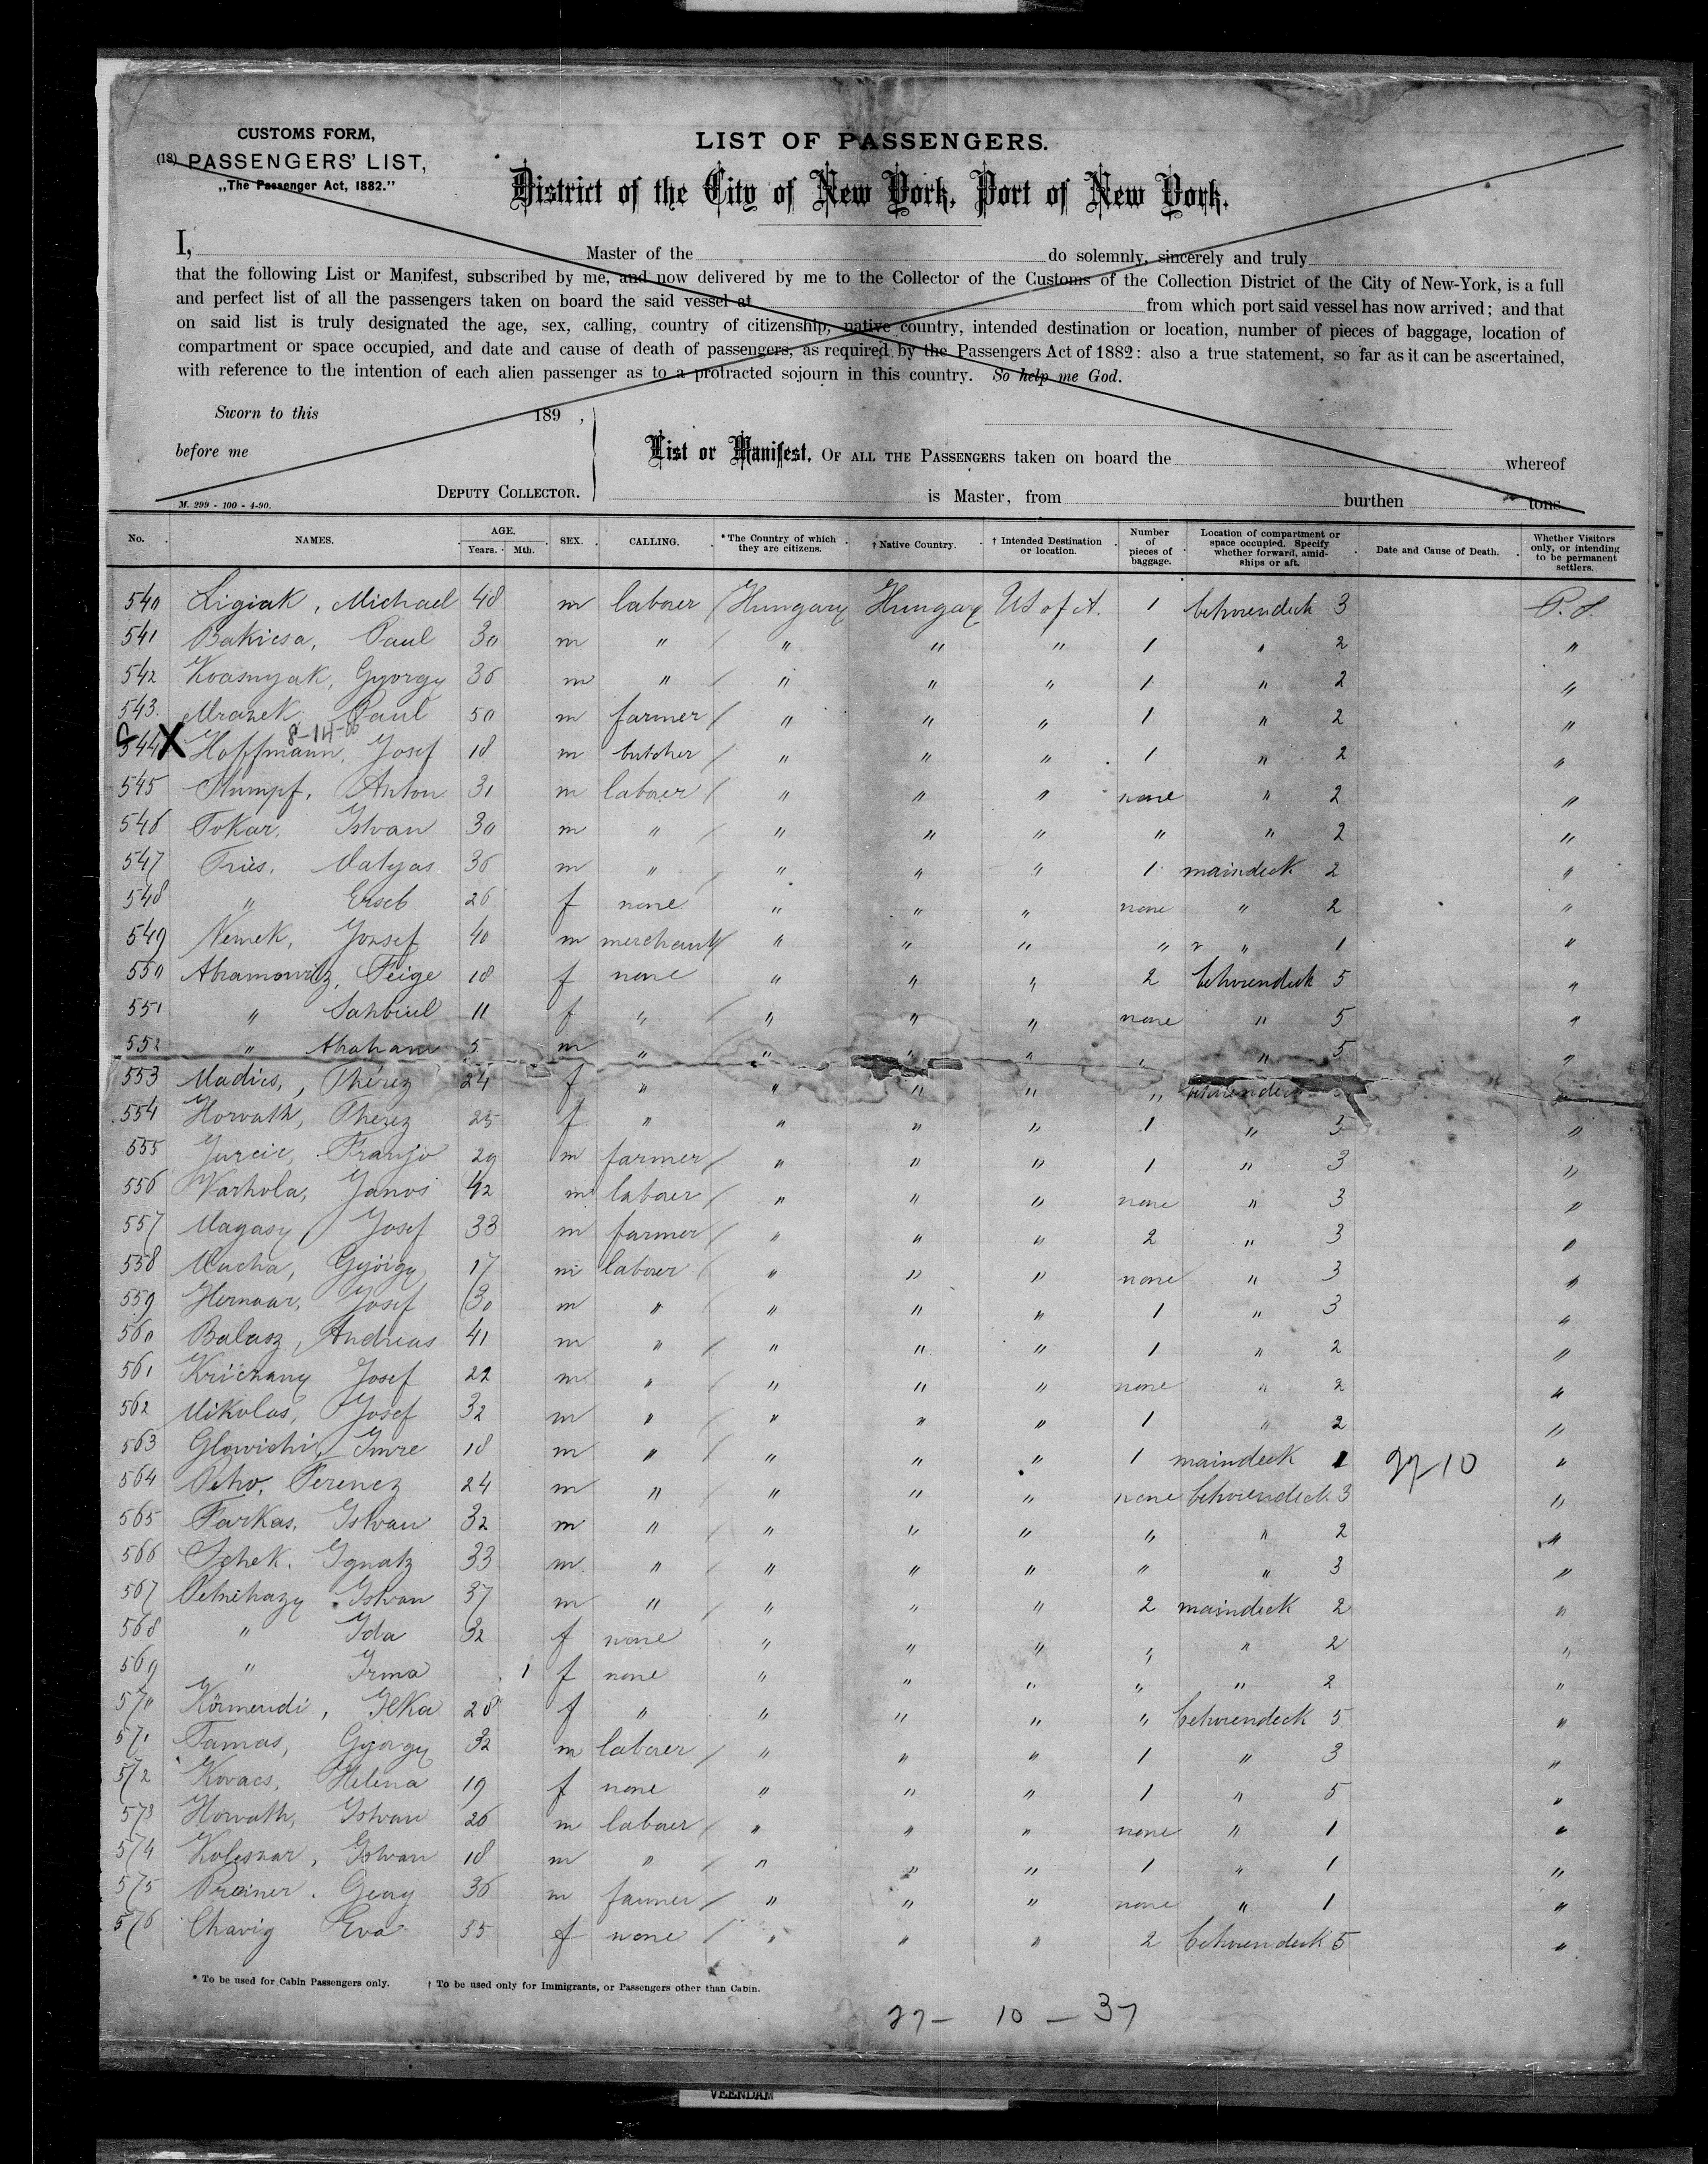 CUSTOMS FORM,
(18) PASSENGERS' LIST,
„The Passenger Act, 1882."
LIST OF PASSENGERS.
District of the City of New York, Port of New York.
I, Master of the do solemnly, sincerely and truly
that the following List or Manifest, subscribed by me, and now delivered by me to the Collector of the Customs of the Collection District of the City of New-York, is a full
and perfect list of all the passengers taken on board the said vessel at from which port said vessel has now arrived; and that
on said list is truly designated the age, sex, calling, country of citizenship, native country, intended destination or location, number of pieces of baggage, location of
compartment or space occupied, and date and cause of death of passengers, as required by the Passengers Act of 1882: also a true statement, so far as it can be ascertained,
with reference to the intention of each alien passenger as to a protracted sojourn in this country. So help me God.
Sworn to this 189 ,
before me
DEPUTY COLLECTOR.
List or Manifest, OF ALL THE PASSENGERS taken on board the whereof
is Master, from burthen tons
M. 299 - 100 - 4-90.
No. NAMES. AGE. Years. Mth. SEX. CALLING. * The Country of which they are citizens. † Native Country. † Intended Destination or location. Number of pieces of baggage. Location of compartment or space occupied. Specify whether forward, amidships or aft. Date and Cause of Death. Whether Visitors only, or intending to be permanent settlers.
540 Ligiak, Michael 48 m laborer / Hungary Hungary US of A. 1 betweendeck 3 P. S.
541 Paul 30 m " / " " " 1 " 2 "
542 Gyorgy 36 m " / " " " 1 " 2 "
543 Mrazek Paul 50 m farmer / " " " 1 " 2 "
8-14-
544 X Hoffmann, Josef 18 m butcher / " " " 1 " 2 "
545 Stumpf, Anton 31 m laborer / " " " none " 2 "
546 Tokar, Istvan 30 m " / " " " " " 2 "
547 Fries, Matyas 36 m " / " " " 1 maindeck 2 "
548 " Erseb 26 f none " " " none " 2 "
549 Nemek, Jozsef 40 m merchant / " " " " " 1 "
550 Abramowitz, Feige 18 f none " " " 2 betweendeck 5 "
551 " 11 f " / " " " none " 5 "
552 " Abraham 5 m " " " " " " 5 "
553 Madics, Therez 24 f " " " " " betweendeck "
554 Horvath, Therez 25 f " " " " 1 " 3 "
555 Jurcic, Franjo 29 m farmer / " " " 1 " 3 "
556 Warhola, Janos 42 m laborer / " " " none " 3 "
557 Magasy, Josef 33 m farmer / " " " 2 " 3 "
558 Mucha, György 17 m laborer / " " " none " 3 "
559 Josef 30 m " / " " " 1 " 3 "
560 Balasz, Andreas 41 m " / " " " 1 " 2 "
561 Josef 22 m " / " " " none " 2 "
562 Mikolas, Josef 32 m " / " " " 1 " 2 "
563 Imre 18 m " / " " " 1 maindeck 1 27-10 "
564 Peho, Ferencz 24 m " / " " " none betweendeck 3 "
565 Farkas, Istvan 32 m " / " " " " " 2 "
566 Ignatz 33 m " / " " " " " 3 "
567 Petnehazy Istvan 37 m " / " " " 2 maindeck 2 "
568 " Ida 32 f none " " " " " 2 "
569 " Irma 1 f none " " " " " 2 "
570 Körmendi, Ilka 28 f " " " " " betweendeck 5 "
571 Tamas, György 32 m laborer / " " " 1 " 3 "
572 Kovacs, Helena 19 f none " " " 1 " 5 "
573 Horvath, Istvan 26 m laborer / " " " none " 1 "
574 Kolesnar, Istvan 18 m " / " " " 1 " 1 "
575 Preiner, Georg 36 m farmer / " " " none " 1 "
576 Eva 35 f none / " " " 2 betweendeck 5 "
* To be used for Cabin Passengers only. † To be used only for Immigrants, or Passengers other than Cabin.
27 - 10 - 37
VEENDAM